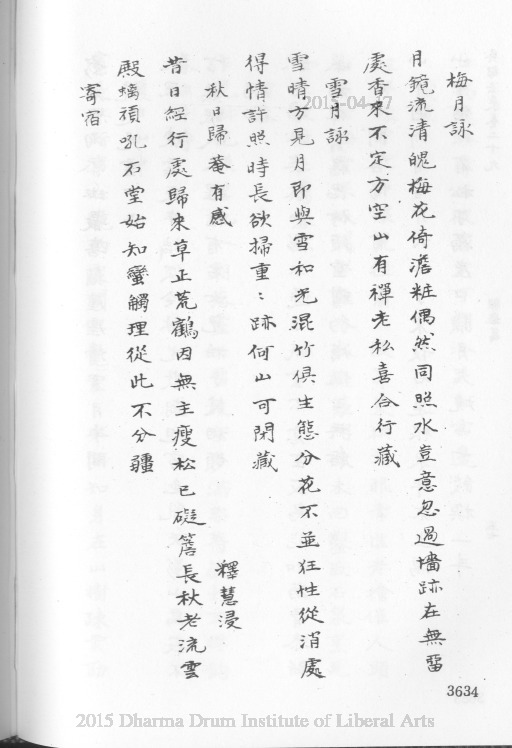 梅月詠
月鏡流清魄梅花倚澹粧偶然同照水豈意忽過墻跡在無留
處香來不定方空山有禪老私喜合行藏
雪月詠
雪晴方見月即與雪和光混竹俱生態分花不並狂性從消處
得情許照時長欲掃重：跡何山可閉藏
秋日歸菴有感
釋慧浸
昔日經行處歸來草正荒鶴因無主瘦松已礙簷長秋老流雲
殿蝸頑吼石堂始知蠻觸理從此不分疆
寄宿
3634
2015-04-27
2015 Dharma Drum Institute of Liberal Arts